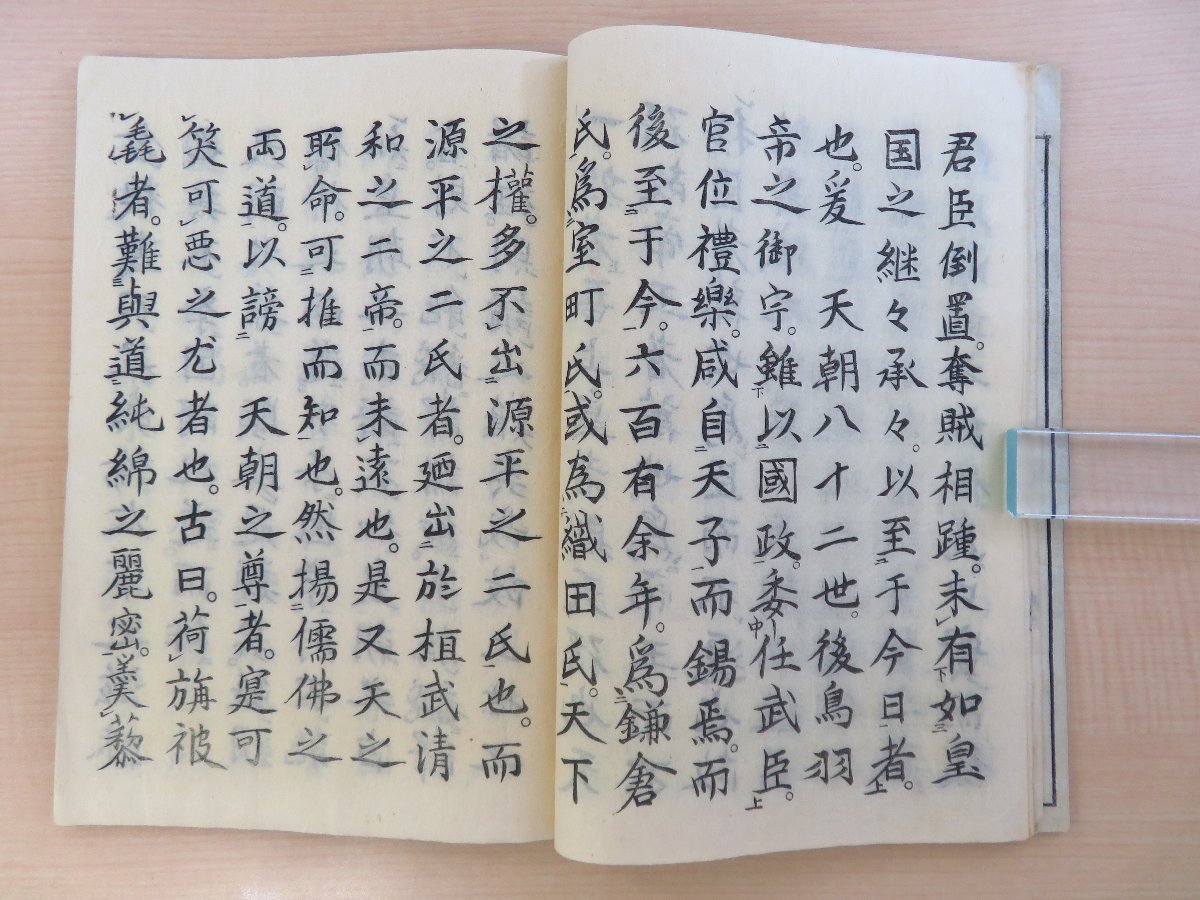 君臣倒置。奪賊相踵。未有如皇
国之継々承々。以至于今日者。
也。爰　天朝八十二世。後鳥羽
帝之御宇。雖以國政。委任武臣。
官位禮樂。咸自天子而錫焉。而
後至于今。六百有余年。為鎌倉
氏。為室町氏。或為織田氏。天下
之權。多不出源平之二氏也。而
源平之二氏者。廼出於桓武清
和之二帝。而未遠也。是又天之
所命。可推而知也。然揚儒佛之
両道。以謗　天朝之尊者。寔可
笑可惡之尤者也。古曰。荷旃被
毳者。難與道純綿之麗密。羹藜